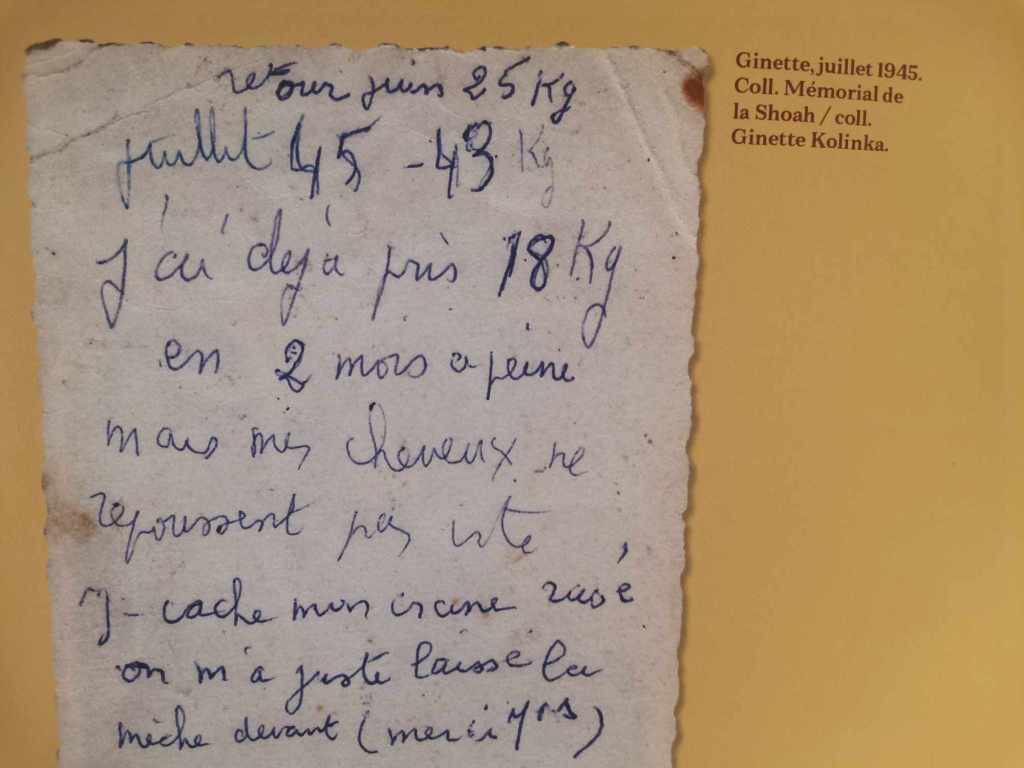 retour juin 25 Kg
juillet 45 - 43 Kg
J'ai déjà pris 18 Kg
en 2 mois a peine
mais mes cheveux ne
repoussent pas vite,
J- cache mon crane rasé
on m'a juste laissé la
mèche devant (merci
Ginette, juillet 1945.
Coll. Mémorial de
la Shoah / coll.
Ginette Kolinka.